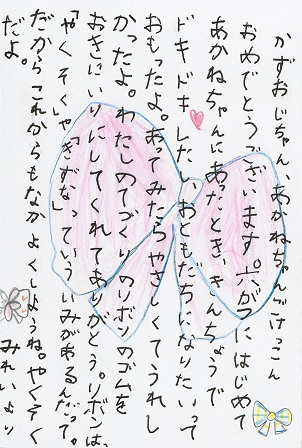 かずおじちゃん、あかねちゃんごけっこん
おめでとうございます。六がつにはじめて
あかねちゃんにあったとき、きんちょうで
ドキドキした
おともだちになりたいって
おもったよ。あってみたらやさしくてうれし
かったよ。わたしのてづくりのリボンのゴムを
おきにいりにしてくれてありがとう。リボンは、
「やくそく」や「きずな」っていういみがあるんだって。
だからこれからもなかよくしようね。やくそく
だよ。
みれいより